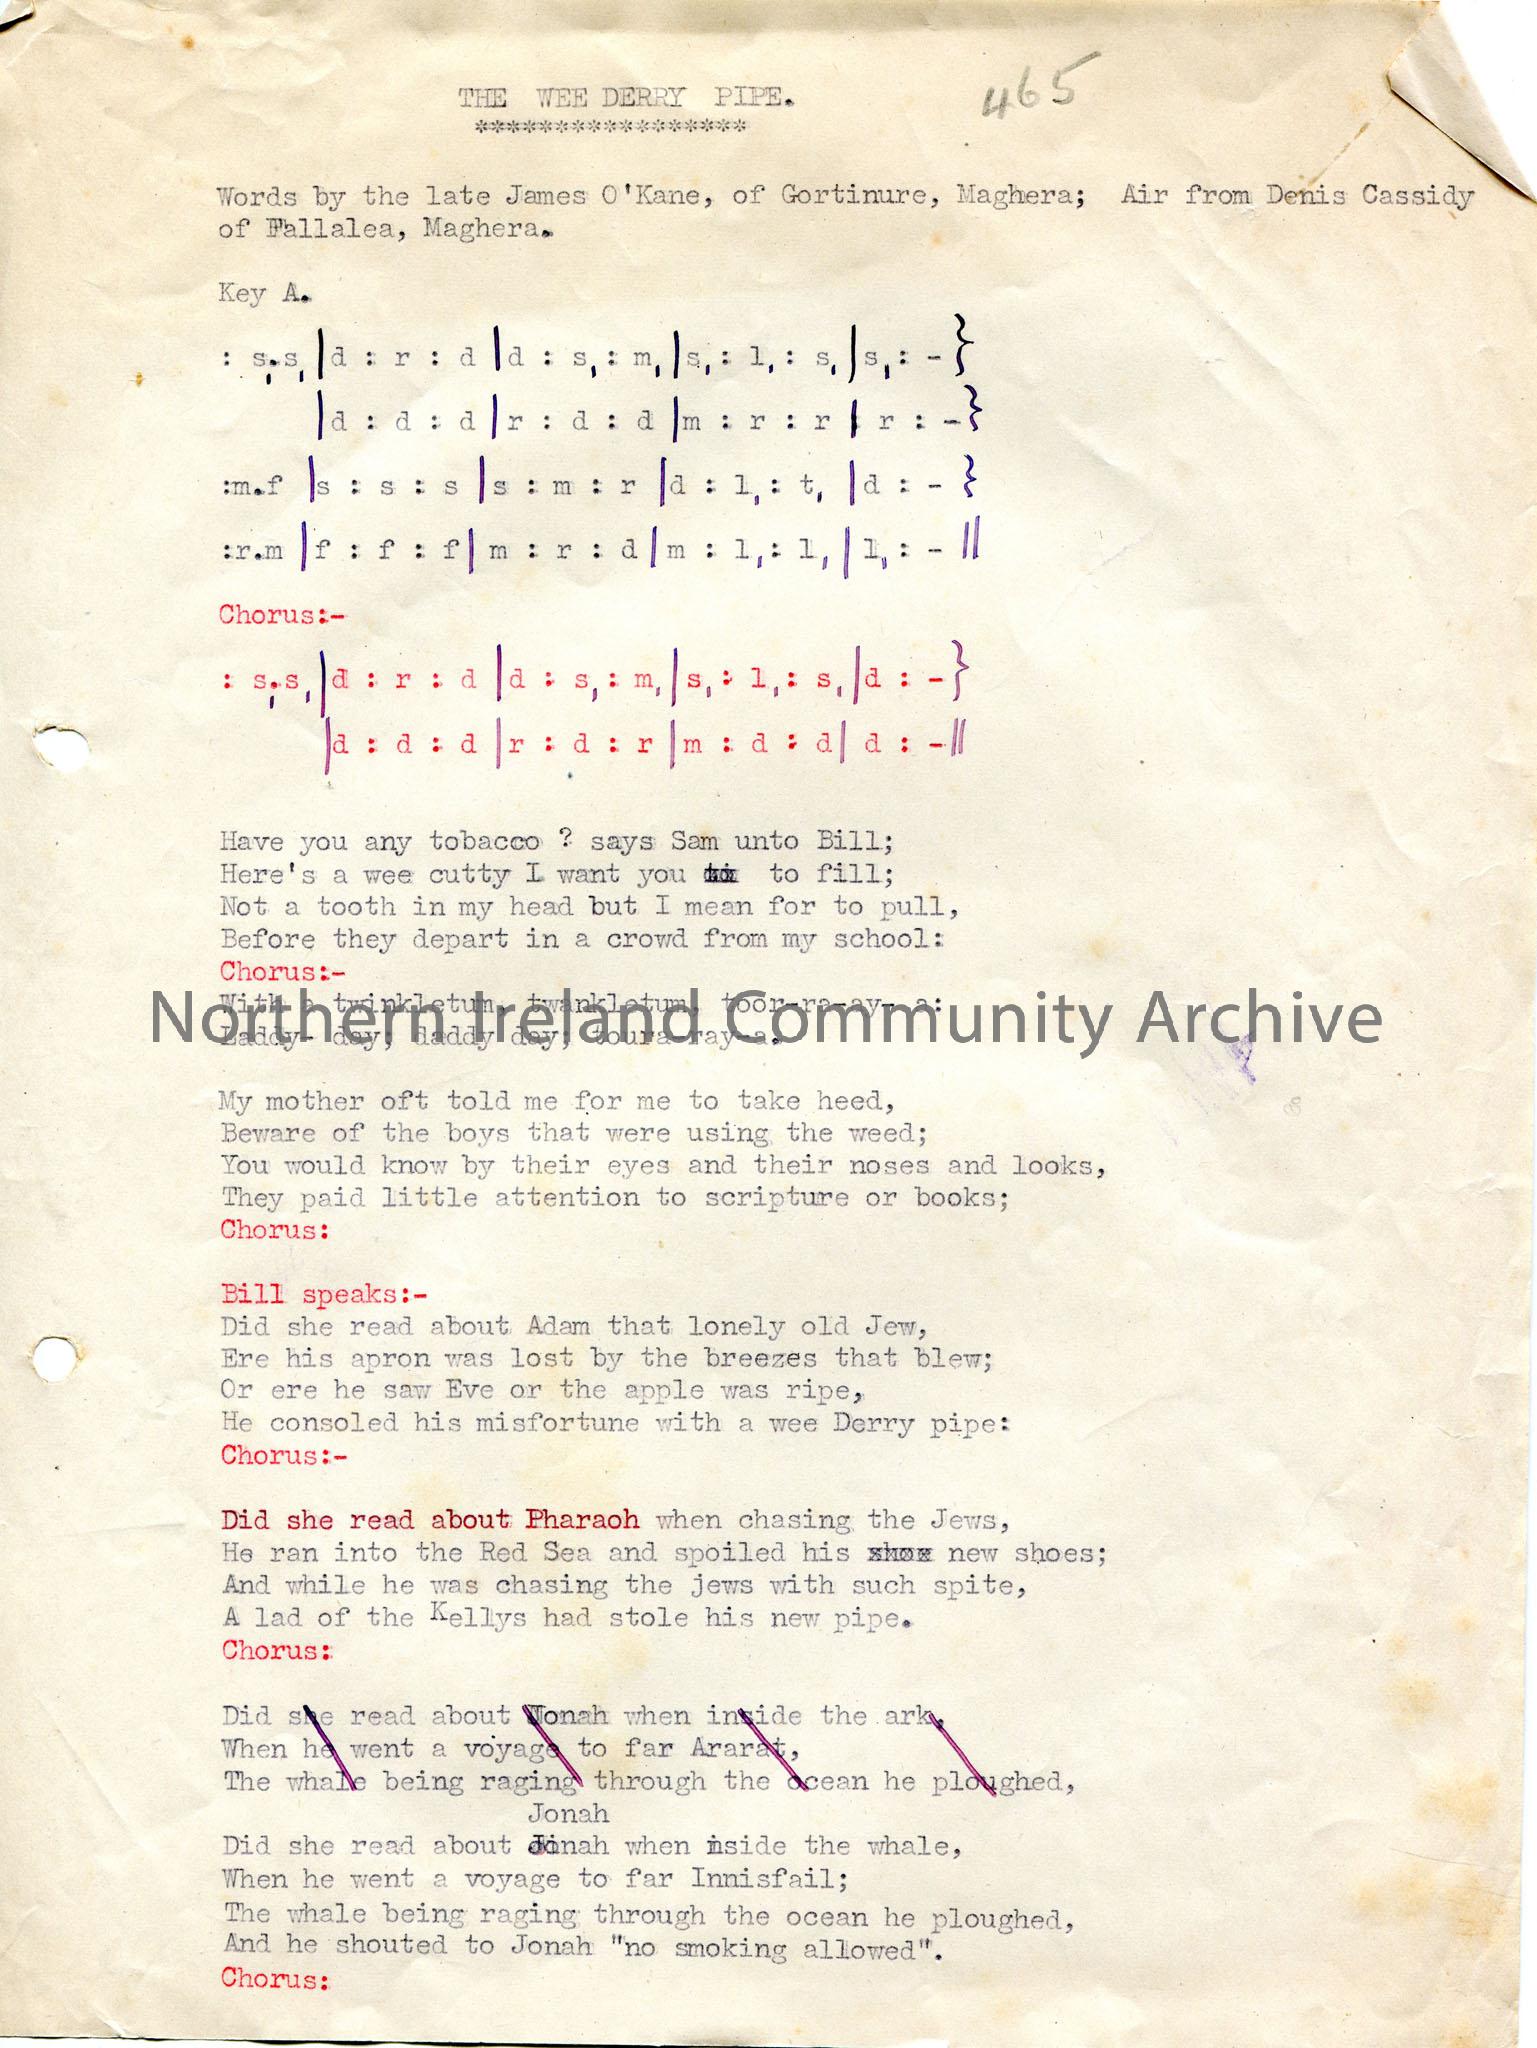 THE WEE DERRY PIPE.
465
*****************
Words by the late James O'Kane, of Gortinure, Maghera; Air from Denis Cassidy
of Fallalea, Maghera.
Key A.
: s,.s, |d : r : d |d : s, : m, |s, : l, : s, |s, : - }
|d : d : d |r : d : d |m : r : r | r : - }
:m.f |s : s : s |s : m : r |d : l, : t, |d : - }
:r.m |f : f : f |m : r : d |m : l, : l, |l, : - ||
Chorus:-
: s,.s, |d : r : d |d : s, : m, |s, : l, : s, |d : - }
|d : d : d |r : d : r |m : d : d | d : - ||
Have you any tobacco ? says Sam unto Bill;
Here's a wee cutty I want you to fill;
Not a tooth in my head but I mean for to pull,
Before they depart in a crowd from my school:
Chorus:-
With a twinkletum, twankletum, toor-ra-ay- a:
Northern Ireland Community Archive
Laddy- day; daddy day; toura-ray-a.
My mother oft told me for me to take heed,
Beware of the boys that were using the weed;
You would know by their eyes and their noses and looks,
They paid little attention to scripture or books;
Chorus:
Bill speaks:-
Did she read about Adam that lonely old Jew,
Ere his apron was lost by the breezes that blew;
Or ere he saw Eve or the apple was ripe,
He consoled his misfortune with a wee Derry pipe:
Chorus:-
Did she read about Pharaoh when chasing the Jews,
He ran into the Red Sea and spoiled his new shoes;
And while he was chasing the jews with such spite,
A lad of the Kellys had stole his new pipe.
Chorus:
Did she read about Jonah when inside the ark,
When he went a voyage to far Ararat,
The whale being raging through the ocean he ploughed,
Jonah
Did she read about when inside the whale,
When he went a voyage to far Innisfail;
The whale being raging through the ocean he ploughed,
And he shouted to Jonah "no smoking allowed".
Chorus: